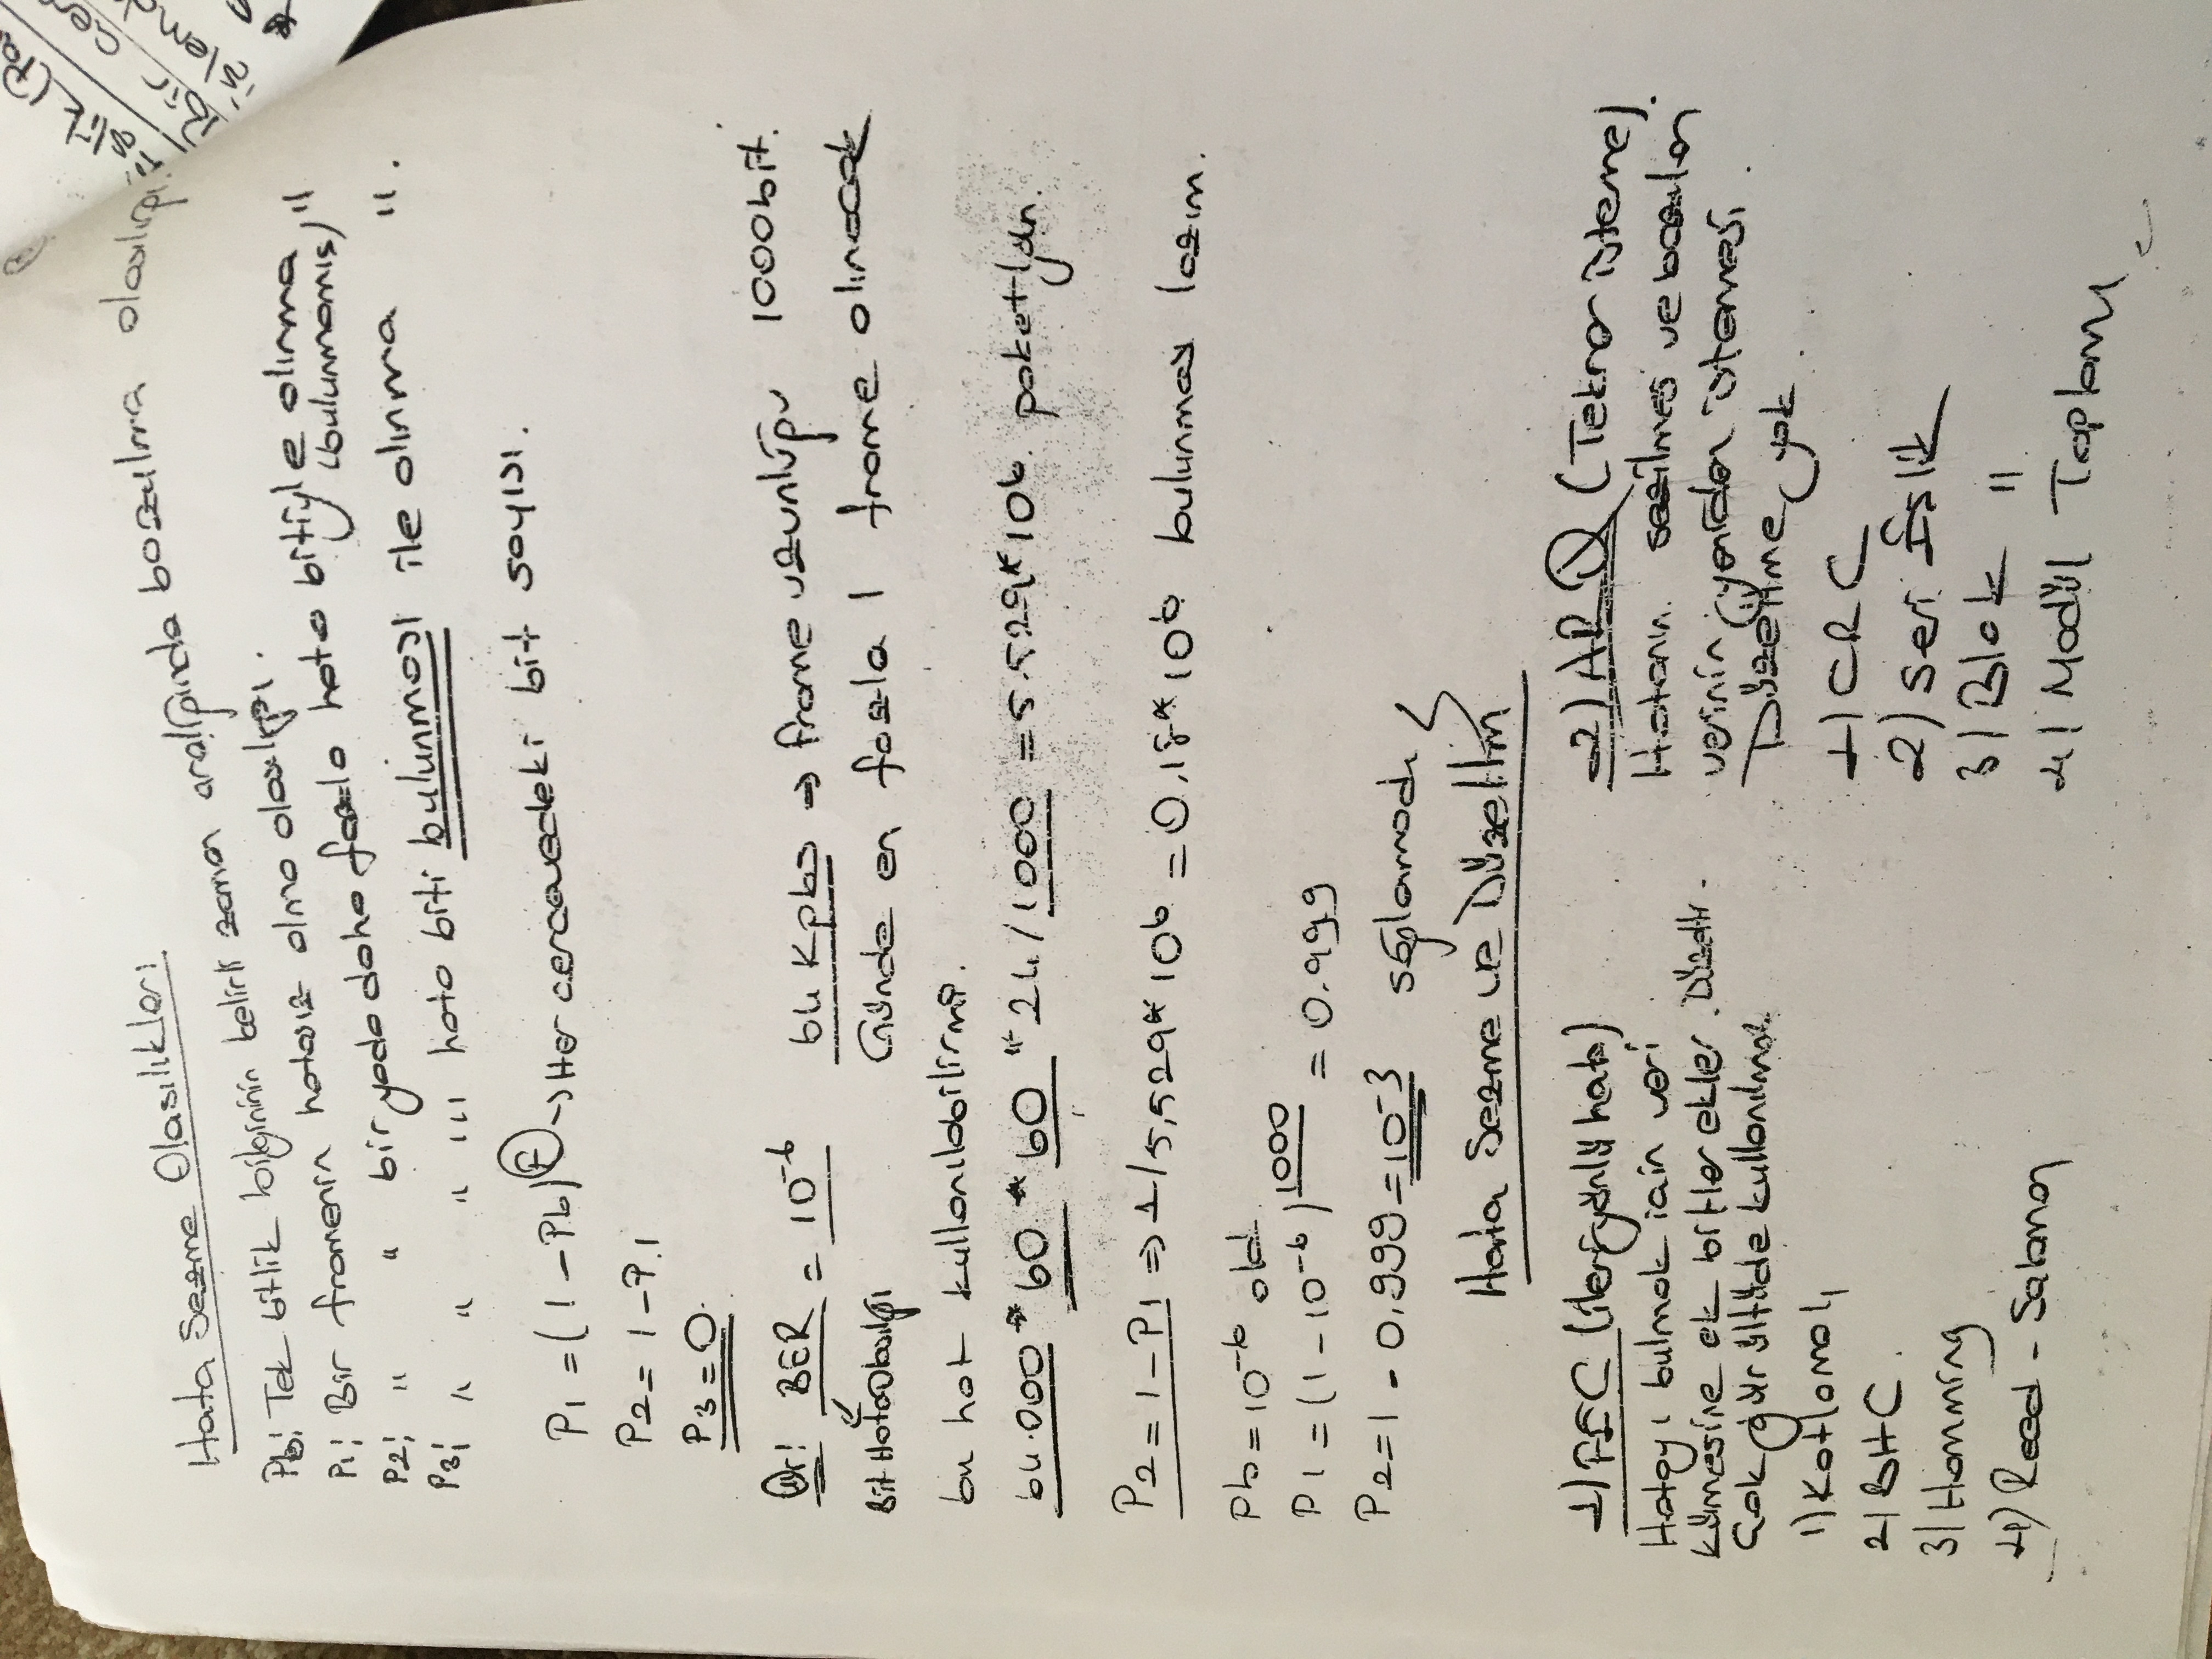 Hata Sezme Olasılıkları
Pb: Tek bitlik bilgininin belirli zaman aralığında bozulma olasılığı.
P1: Bir framenin hatasız alma olasılığı.
P2: " " bir yada daha fazla hata bitiyle alınma "
(bulunmamış)
P3: " " " ııı hata biti bulunması ile alınma ".
P1 = (1 - Pb)^F → Her cercevedeki bit sayısı.
P2 = 1 - P1
P3 = 0.
Ör: BER = 10^-6 64 Kpbs → frame uzunluğu 1000 bit.
Bit Hata Olasılığı Günde en fazla 1 frame alınacak
bu hat kullanılabilirmi.
64.000 * 60 * 60 * 24 / 1000 = 5.529 * 10^6 paket/gün.
P2 = 1 - P1 ⇒ 1/5,529 * 10^6 = 0.18 * 10^6 bulunması lazım.
Pb = 10^-6 old.
P1 = (1 - 10^-6)^1000 = 0.999
P2 = 1 - 0.999 = 10^-3 sağlamadı
Hata Sezme ve Düzeltim
1) FEC (ileri yönlü hata)
Hatayı bulmak için veri
kümesine ek bitler ekler. Düzeltir.
Çok gürültüde kullanılmaz.
1) Katlamalı
2) BHC.
3) Hamming
4) Reed - Salamon
2) ARQ (Tekrar isteme).
Hatanın sezilmesi ve bozulan
verinin yeniden istemesi.
Düzeltme yok.
1) CRC
2) Seri Eşlik
3) Blok "
4) Modül Toplamı
işlik (Pa
Bir
işlemd